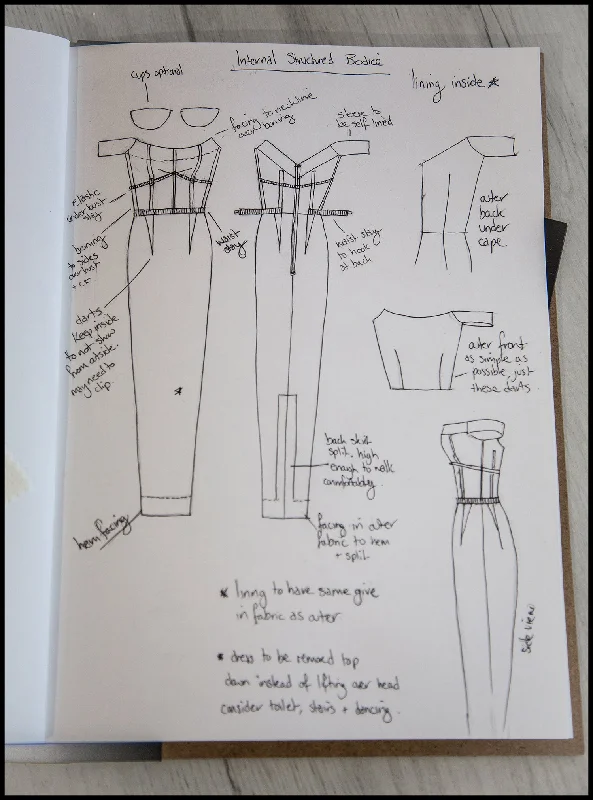 Internal Structured Bodice
cups optional
lining inside *
facing to neckline
over boning
sleeve to
be self lined
elastic
underbust
stay
boning
to sides
over bust
+ c.f
waist
stay
waist stay
to hook
at back
outer
back
under
cape
darts
keep inside
to not show
from outside.
may need to
clip.
outer front
as simple as
possible, just
these darts.
*
back skirt
split, high
enough to walk
comfortably.
hem facing
facing in outer
fabric to hem
+ split
* lining to have same give
in fabric as outer
* dress to be removed top
down instead of lifting over head
consider toilet, stairs + dancing.
side view